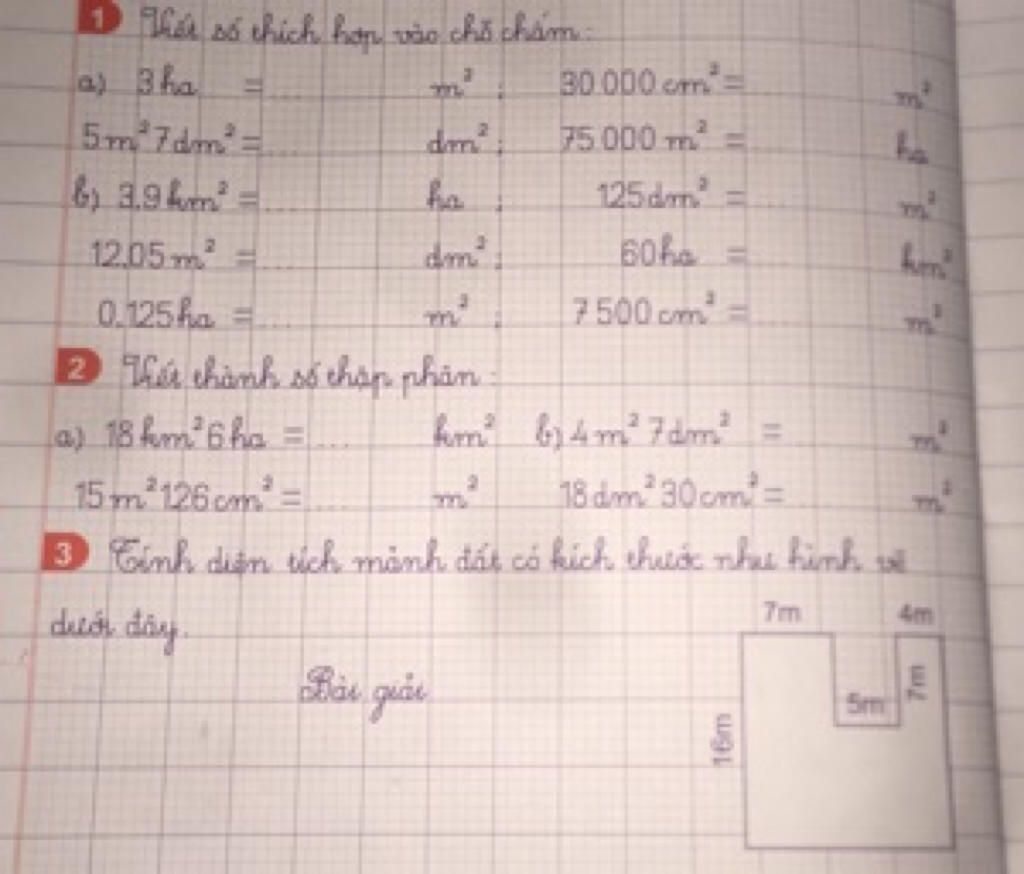 1 Viết số thích hợp vào chỗ chấm:
a) 3 ha = ... m² ; 30 000 cm² = ... m²
5 m² 7 dm² = ... dm² ; 75 000 m² = ... ha
b) 3,9 km² = ... ha ; 125 dm² = ... m²
12,05 m² = ... dm² ; 60 ha = ... km²
0,125 ha = ... m² ; 7 500 cm² = ... m²
2 Viết thành số thập phân:
a) 18 km² 6 ha = ... km² b) 4 m² 7 dm² = m²
15 m² 126 cm² = ... m² 18 dm² 30 cm² = ... m²
3 Tính diện tích mảnh đất có kích thước như hình vẽ
dưới đây.
Bài giải
7m 4m
5m 7m
16m